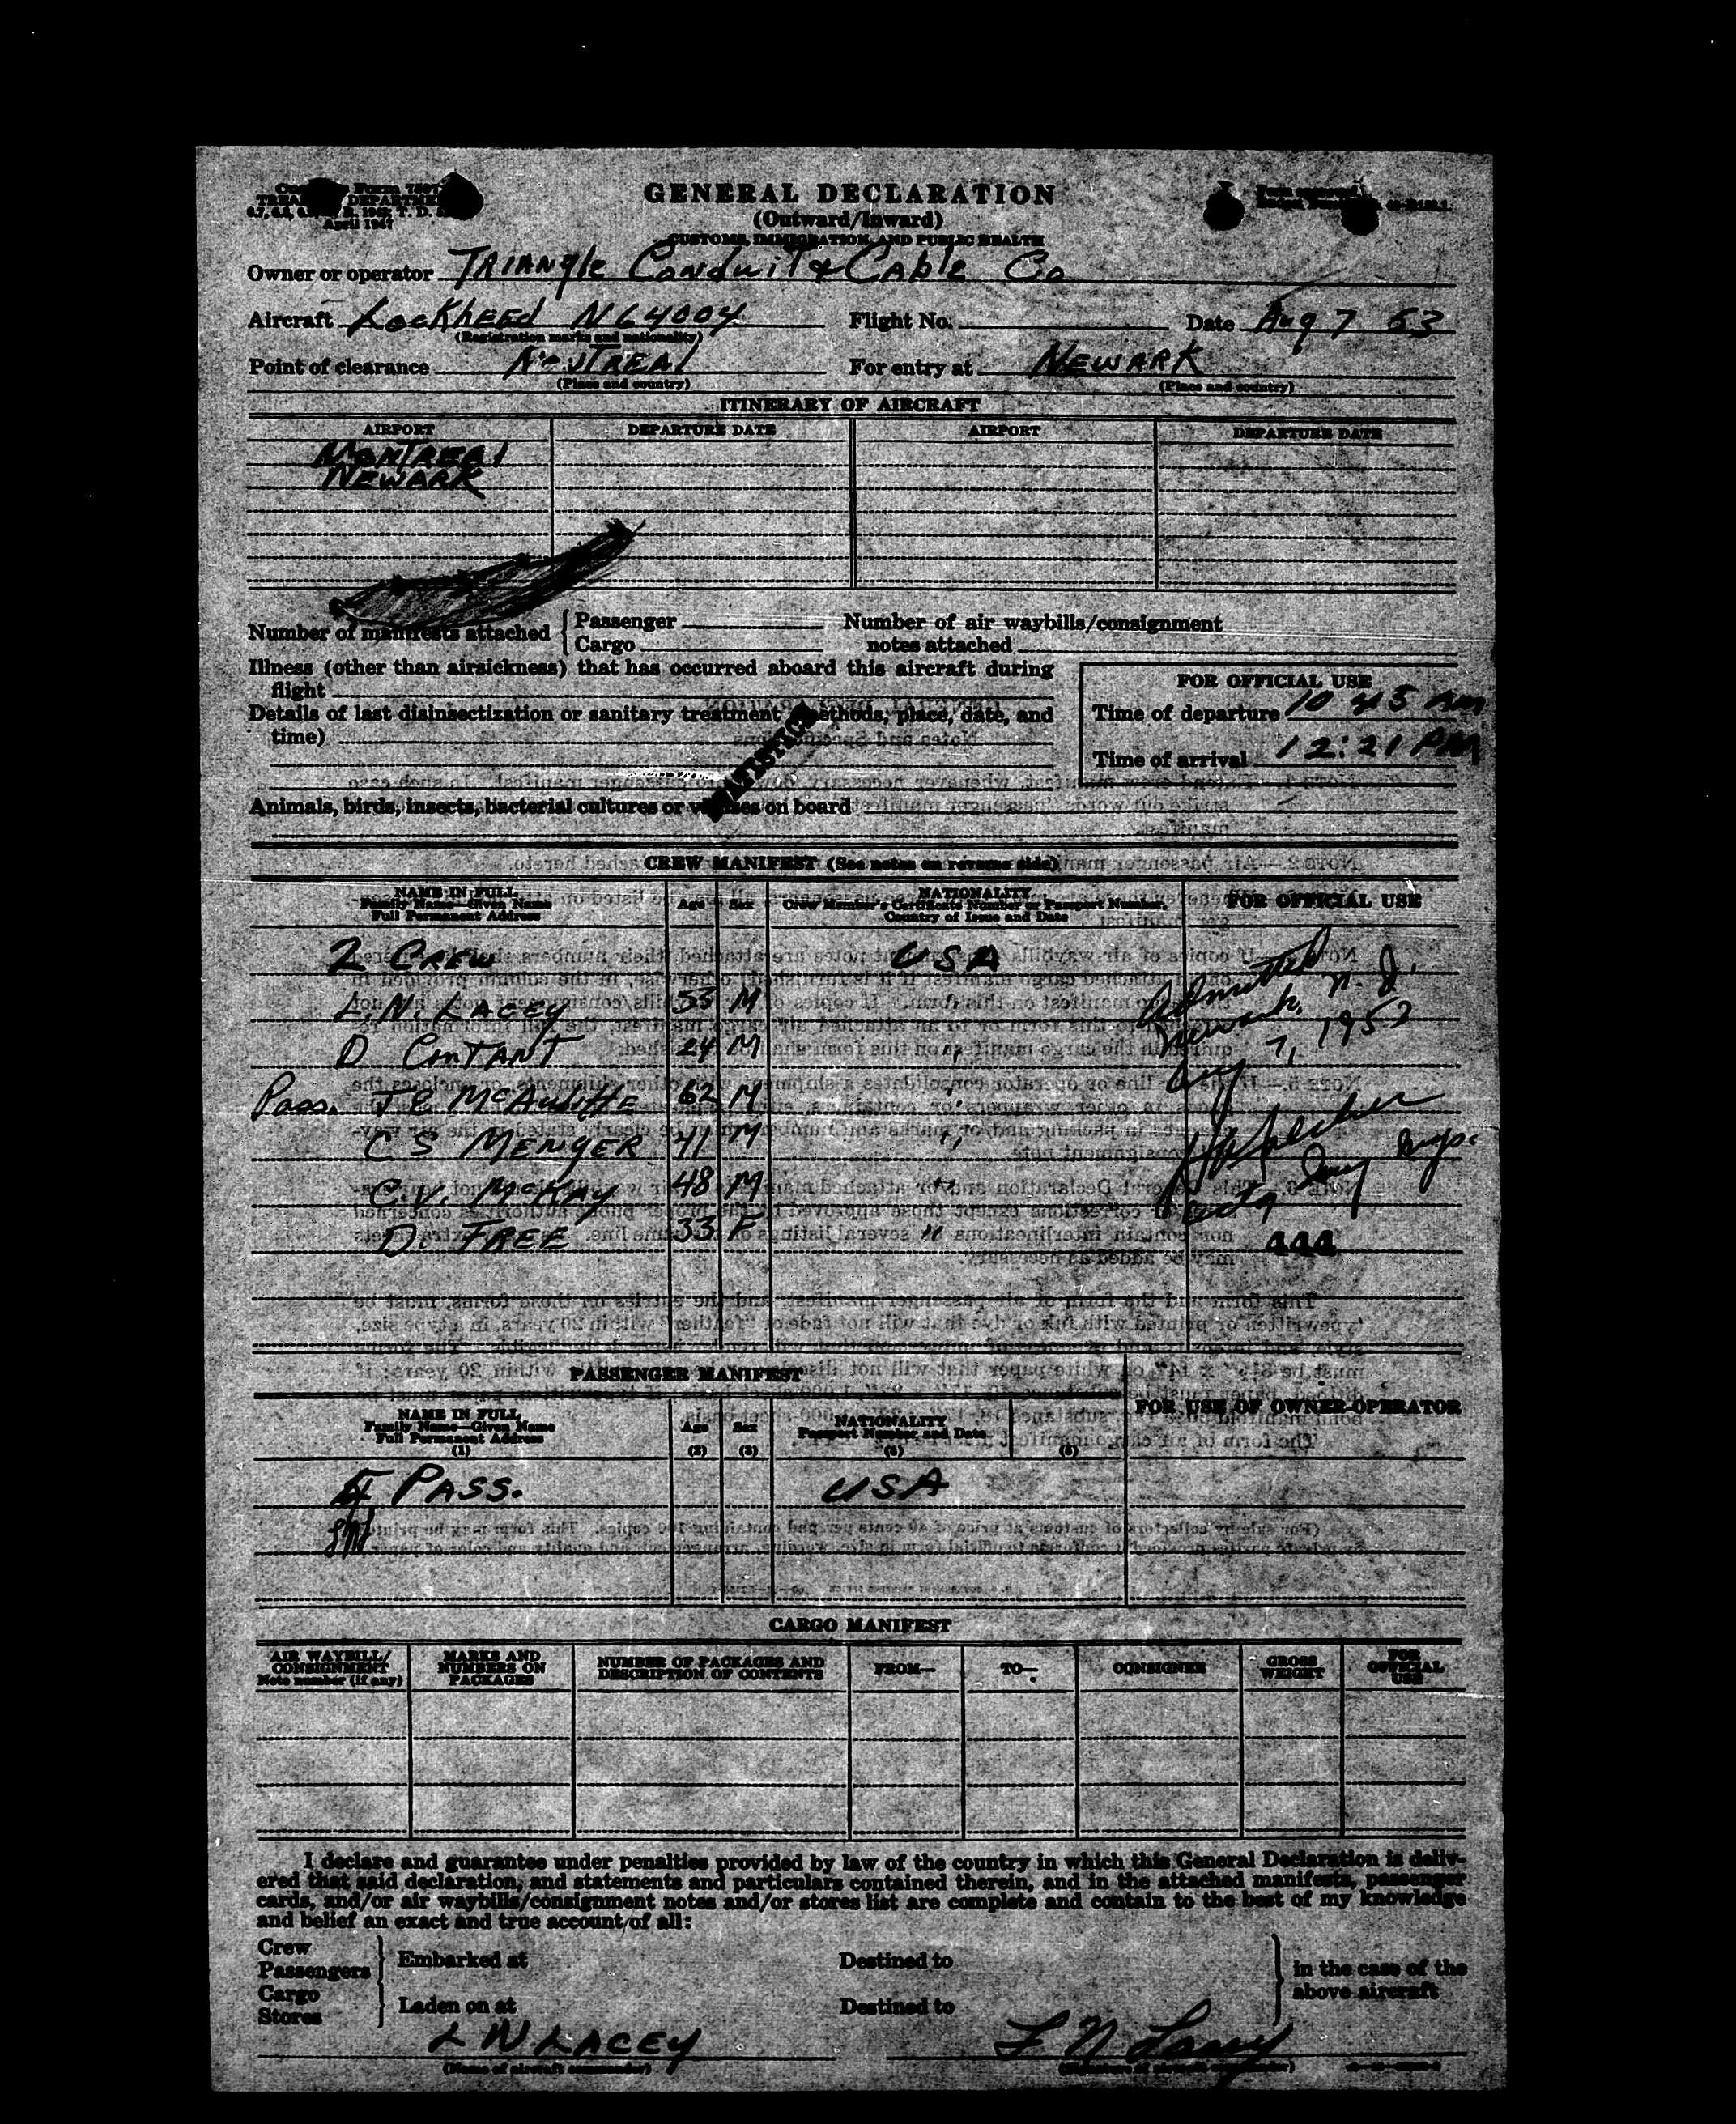 Customs Form 7507
TREASURY DEPARTMENT
April 1947
GENERAL DECLARATION
(Outward/Inward)
CUSTOMS, IMMIGRATION, AND PUBLIC HEALTH
Form approved.
Owner or operator TRIANglE CONduiT & CAblE Co
Aircraft LocKhEEd N64004 Flight No. Date Aug 7 53
(Registration marks and nationality)
Point of clearance MoNTREAl For entry at NEWARK
(Place and country) (Place and country)
ITINERARY OF AIRCRAFT
AIRPORT DEPARTURE DATE AIRPORT DEPARTURE DATE
MONTREAl
NEWARK
Number of manifests attached { Passenger Number of air waybills/consignment
Cargo notes attached
Illness (other than airsickness) that has occurred aboard this aircraft during
flight
FOR OFFICIAL USE
Time of departure 10 45 AM
Time of arrival 12:21 PM
Details of last disinsectization or sanitary treatment (methods, place, date, and
time)
STATISTICS
Animals, birds, insects, bacterial cultures or viruses on board
CREW MANIFEST (See notes on reverse side)
NAME IN FULL
Family Name—Given Name
Full Permanent Address
Age Sex
NATIONALITY
Crew Member's Certificate Number or Passport Number,
Country of Issue and Date
FOR OFFICIAL USE
2 CREW USA
L.N. LACEY 33 M
D CONTANT 24 M "
Pass. J E McAuliffe 62 M "
C S MENGER 41 M "
C.V. McKAY 48 M "
D. FREE 33 F "
Admitted
Newark, N. J.
Aug 7, 1953
444
PASSENGER MANIFEST
NAME IN FULL
Family Name—Given Name
Full Permanent Address
(1)
Age
(2)
Sex
(3)
NATIONALITY
Passport Number and Date
(4) (5)
FOR USE OF OWNER-OPERATOR
4 PASS. USA
CARGO MANIFEST
AIR WAYBILL/
CONSIGNMENT
Note number (if any)
MARKS AND
NUMBERS ON
PACKAGES
NUMBER OF PACKAGES AND
DESCRIPTION OF CONTENTS
FROM—
TO—
CONSIGNEE
GROSS
WEIGHT
FOR
OFFICIAL
USE
I declare and guarantee under penalties provided by law of the country in which this General Declaration is deliv-
ered that said declaration, and statements and particulars contained therein, and in the attached manifests, passenger
cards, and/or air waybills/consignment notes and/or stores list are complete and contain to the best of my knowledge
and belief an exact and true account of all:
Crew
Passengers
Cargo
Stores
Embarked at Destined to
Laden on at Destined to
in the case of the
above aircraft
L N LACEY L N Lacey
(Name of aircraft commander) (Signature of aircraft commander)